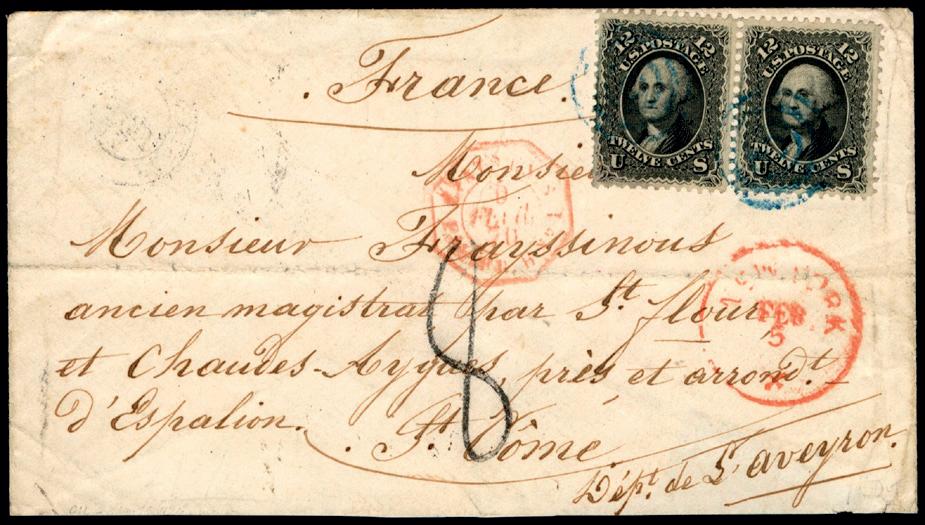 France.
12 U.S. POSTAGE 12
TWELVE CENTS
U S
12 U.S. POSTAGE 12
TWELVE CENTS
U S
Monsieur
Monsieur Frayssinous
ancien magistrat par St. flour
et Chaudes-Aygues, près et arrondt.
d'Espalion.
St. Côme
Dépt. de L'aveyron.
8
NEW YORK
FEB
5